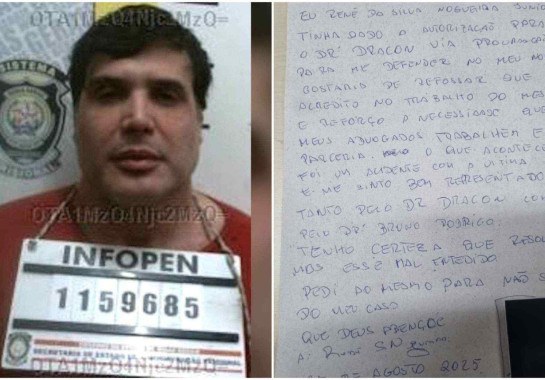 OTA1MzQ4Njc2MzQ=
SISTEMA
OTA1MzQ4Njc2MzQ=
INFOPEN
1159685
SECRETARIA DE ESTADO DE
OTA1MzQ4Njc2MzQ=
EU RENÊ DA SILVA NOGUEIRA JUNIO
TINHA DADO A AUTORIZAÇÃO PARA
O DR DRACON VIA PROCURAÇÃO
PARA ME DEFENDER NO MEU
GOSTARIA DE REFORSAR QUE
ACREDITO NO TRABALHO DO MES
E REFORÇO A NECESSIDADE QUE
MEUS ADVOGADOS TRABALHEM E
PARCERIA. O QUE ACONTECE
FOI UM ACIDENTE COM A VITIMA
E ME SINTO BEM REPRESENTADO
TANTO PELO DR DRACON CO
PELO DR BRUNO RODRIGO.
TENHO CERTEZA QUE RESOL
MOS ESSE MAL ENTEDIDO
PEDI AO MESMO PARA NÃO S
DO MEU CASO
QUE DEUS ABENÇOE
AGOSTO 2025